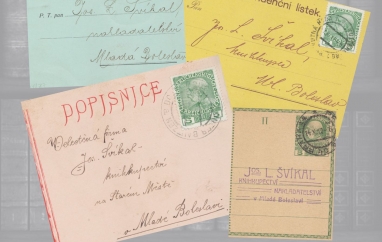 P. T. pan
Jos. L. Švikal
nakladatelství
Mladá Boleslav
listek
Pan
Jos. L. Švikal,
knihkupec
Ml. Boleslav
DOPISNICE
Velectěná firma
Jos. Švikal
knihkupectví
na Starém Městě
v Mladé Boleslavi
II
Jos. L. ŠVIKAL
KNIHKUPECTVÍ
NAKLADATELSTVÍ
v Mladé Boleslavi